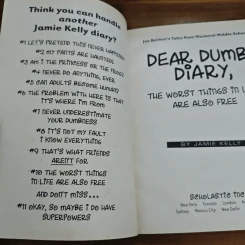 Think you can handle
another
Jamie Kelly diary?
#1 LET'S PRETEND THIS NEVER HAPPENED
#2 MY PANTS ARE HAUNTED
#3 AM I THE PRINCESS OR THE FROG?
#4 NEVER DO ANYTHING, EVER
#5 CAN ADULTS BECOME HUMAN?
#6 THE PROBLEM WITH HERE IS THAT
IT'S WHERE I'M FROM
#7 NEVER UNDERESTIMATE
YOUR DUMBNESS
#8 IT'S NOT MY FAULT
I KNOW EVERYTHING
#9 THAT'S WHAT FRIENDS
AREN'T FOR
#10 THE WORST THINGS
IN LIFE ARE ALSO FREE
AND DON'T MISS...
#11 OKAY, SO MAYBE I DO HAVE
SUPERPOWERS
Jim Benton's Tales from Mackerel Middle School
DEAR DUMB
DIARY,
THE WORST THINGS IN LIFE
ARE ALSO FREE
BY JAMIE KELLY
SCHOLASTIC
New York Toronto London
Sydney Mexico City New Delhi